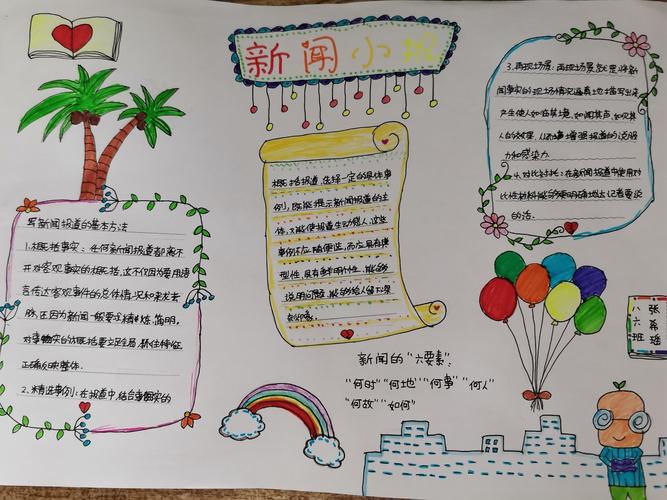 新闻小报
写新闻报道的基本方法
1.概括事实：任何新闻报道都离不
开对客观事实的概括，这不仅因为要用语
言传达客观事件的总体情况和来龙去
脉，还因为新闻一般要求精炼、简明，
对事物实的概括要立足全局，抓住特征，
正确反映整体。
2.精选事例：在报道中，结合事实的
概括报道，选择一定的具体事
例，既能揭示新闻报道的主
体，又能使报道生动感人，这些
事例不应随便选，而应具有典
型性，具有鲜明个性，能够
说明问题，能够给人留下深
刻印象。
3.再现场景：再现场景就是将新
闻事实的现场情况逼真地描写出来
产生使人如临其境，如闻其声，如见其
人的效果，从而增强报道的说服
力和感染力
4.对比衬托：在新闻报道中使用对
比性材料能够更明确地让记者要说
的话。
新闻的“六要素”：
“何时”“何地”“何事”“何人”
“何故”“如何”
八六班
张
瑶